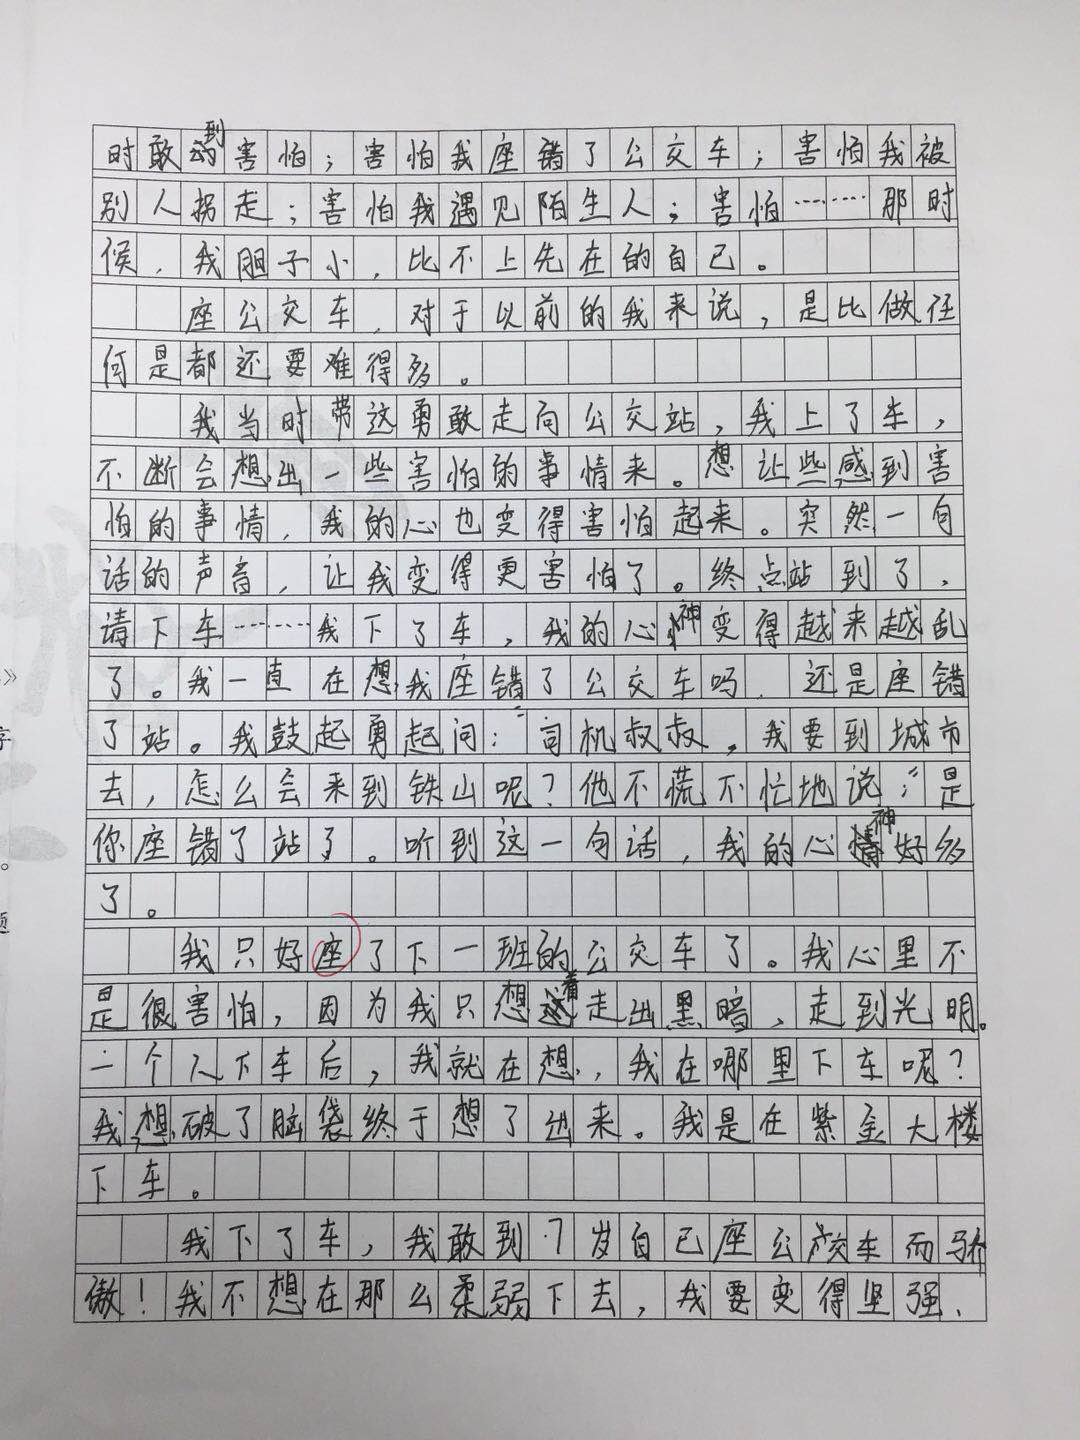 时敢到害怕；害怕我座错了公交车；害怕我被
别人拐走；害怕我遇见陌生人；害怕……那时
候，我胆子小，比不上先在的自己。
座公交车，对于以前的我来说，是比做任
何是都还要难得多。
我当时带这勇敢走向公交站，我上了车，
不断会想出一些害怕的事情来。想让些感到害
怕的事情，我的心也变得害怕起来。突然一句
话的声音，让我变得更害怕了。终点站到了，
请下车……我下了车，我的心神变得越来越乱
了。我一直在想我座错了公交车吗，还是座错
了站。我鼓起勇起问：“司机叔叔，我要到城市
去，怎么会来到铁山呢？他不慌不忙地说：“是
你座错了站了。听到这一句话，我的心神好多
了。
我只好座了下一班的公交车了。我心里不
是很害怕，因为我只想着走出黑暗，走到光明。
一个人下车后，我就在想，我在哪里下车呢？
我想破了脑袋终于想了出来。我是在紫金大楼
下车。
我下了车，我敢到7岁自己座公交车而骄
傲！我不想在那么柔弱下去，我要变得坚强、
》
字
。
题